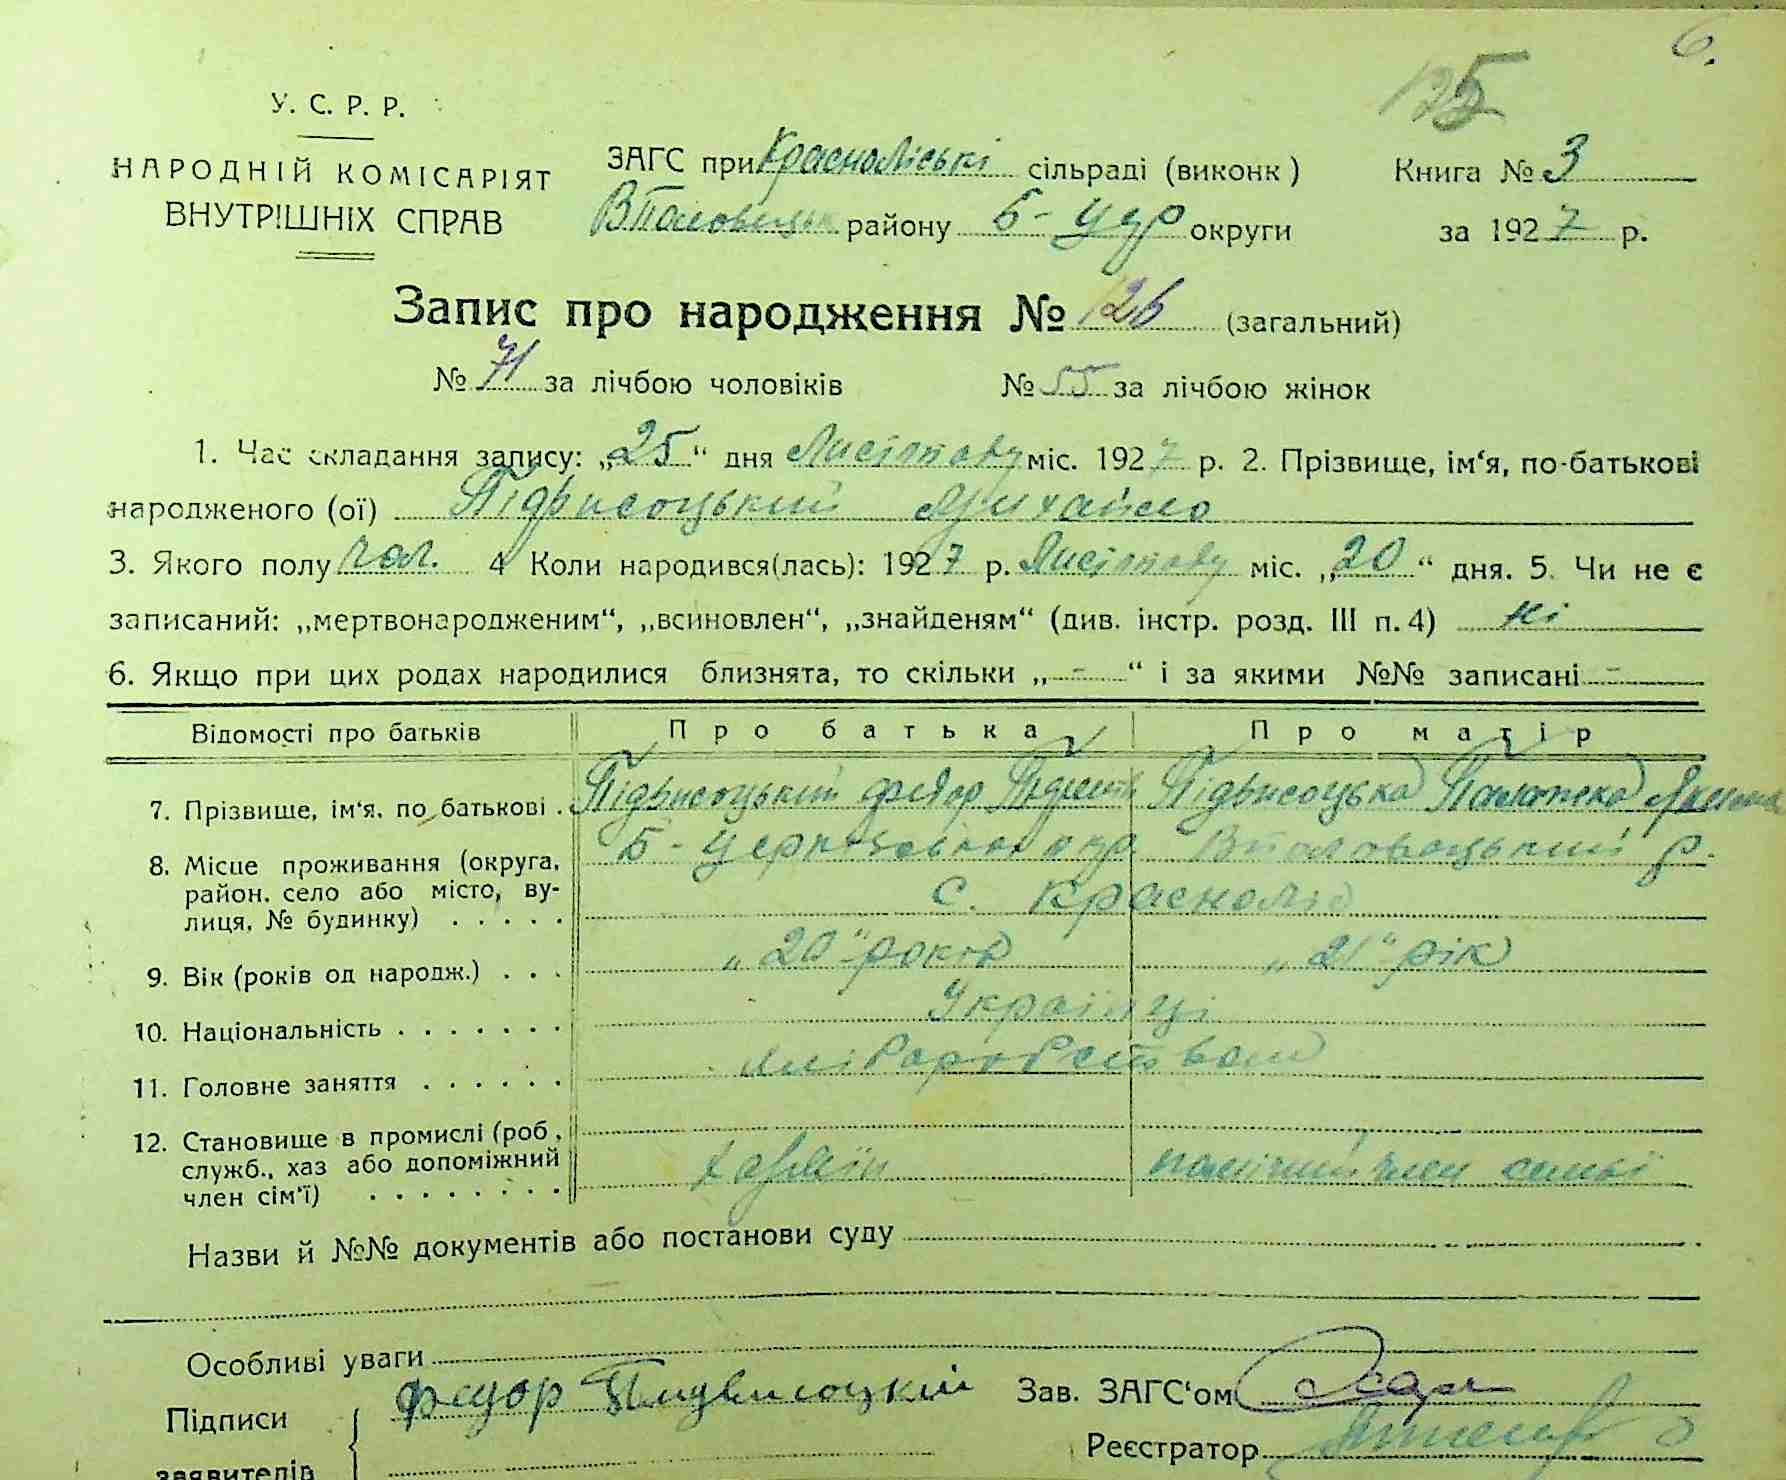 6.
125
У. С. Р. Р.
НАРОДНІЙ КОМІСАРІЯТ
ВНУТРІШНІХ СПРАВ
ЗАГС при Красноліські сільраді (виконк)
району Б-Цер округи
Книга № 3
за 1927 р.
Запис про народження № 126 (загальний)
№ 71 за лічбою чоловіків № 55 за лічбою жінок
1. Час складання запису: „25“ дня Листопаду міс. 1927 р. 2. Прізвище, ім‘я, по-батькові
народженого (ої) Підвисоцький Михайло
3. Якого полу чол. 4 Коли народився(лась): 1927 р. Листопаду міс. „20“ дня. 5. Чи не є
записаний: „мертвонародженим“, „всиновлен“, „знайденям“ (див. інстр. розд. III п. 4) ні
6. Якщо при цих родах народилися близнята, то скільки „-“ і за якими №№ записані -
Відомості про батьків Про батька Про матір
7. Прізвище, ім‘я, по батькові . Підвисоцький Федор Підвисоцька
8. Місце проживання (округа, район, село або місто, вулиця, № будинку) . . . . . Б-Церківської окр р.
с. Красноліс
9. Вік (років од народж.) . . . „20“ років „21“ рік
10. Національність . . . . . . . Українці
11. Головне заняття . . . . . . Хліборобством
12. Становище в промислі (роб., служб., хаз або допоміжний член сім‘ї) . . . . . . . . член
Назви й №№ документів або постанови суду
Особливі уваги
Підписи
заявителів
Федор Пидвисоцкий
Зав. ЗАГС‘ом
Реєстратор